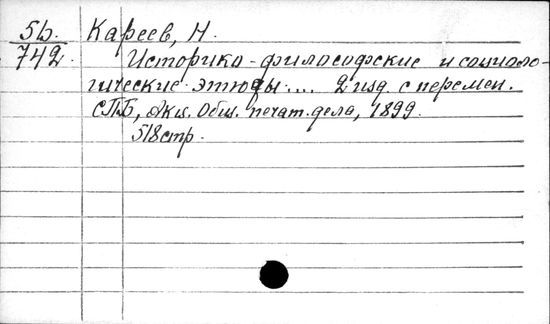 5б. Кареев, Н.
742. Историко-философские и социоло-
гические этюды.... 2 изд. с перемен.
СПБ, Акц. Общ. печат. дела, 1899.
518 стр.